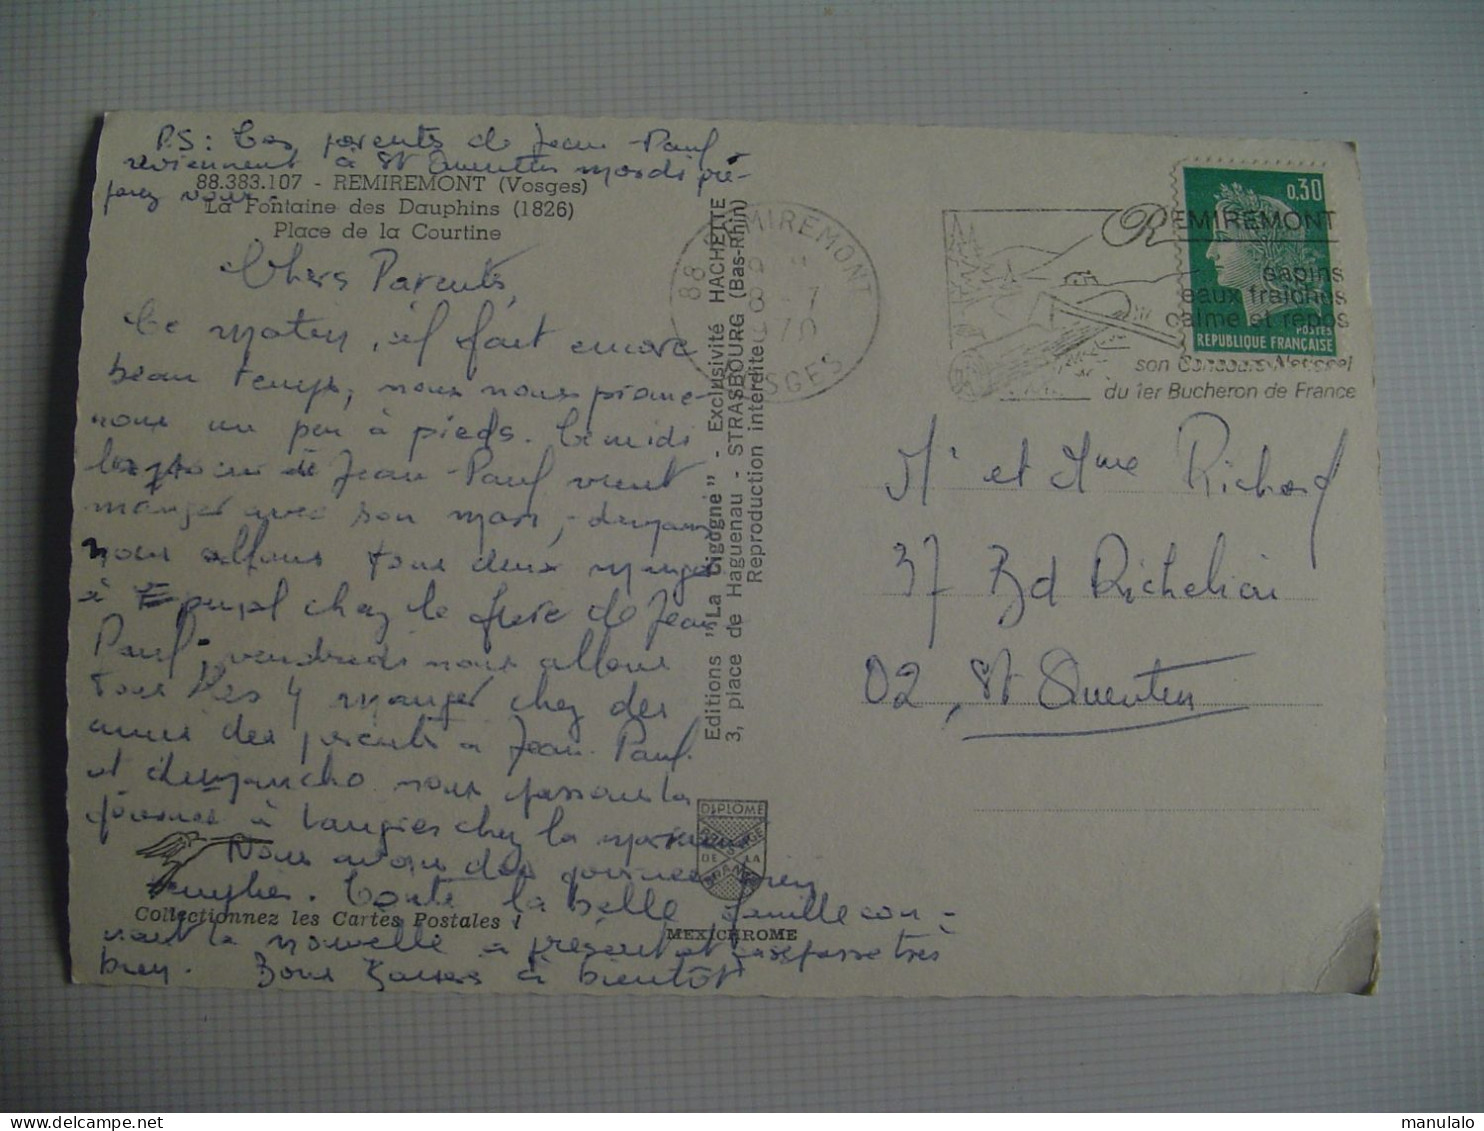 P.S: Les parents de Jean-Paul
reviennent à St Quentin mardi pré-
parez vous.
88.383.107 - REMIREMONT (Vosges)
La Fontaine des Dauphins (1826)
Place de la Courtine
Chers Parents,
Ce matin, il fait encore
beau temps, nous nous prome-
nons un peu à pieds. Ce midi
de Jean-Paul vient
manger avec son mari, demain
nous allons tous deux manger
à Epinal chez le frère de Jean
Paul, vendredi nous allons
tous les 4 manger chez des
amis des parents à Jean-Paul.
et dimanche nous passons la
journée à chez la
Nous avons des journées bien
remplies. Toute la belle famille con-
nait la nouvelle à présent et ca se passe très
bien. Bons Baisers à bientôt
Collectionnez les Cartes Postales !
Editions "La Cigogne" - Exclusivité HACHETTE
3, place de Haguenau - STRASBOURG (Bas-Rhin)
Reproduction interdite
DIPLÔME
PRESTIGE
DE LA
FRANCE
MEXICHROME
88 REMIREMONT
8 - 7
1970
VOSGES
REMIREMONT
sapins
eaux fraiches
calme et repos
son Concours National
du 1er Bucheron de France
0,30
POSTES
REPUBLIQUE FRANÇAISE
Mr et Mme Richard
37 Bd Richelieu
02, St Quentin
www.delcampe.net
manulalo